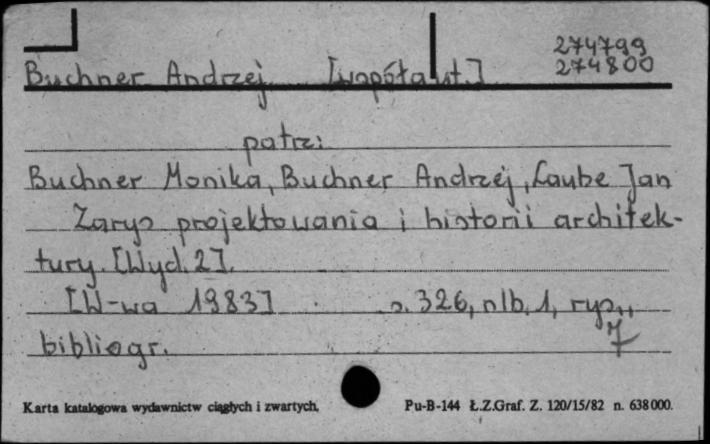 274799
274800
Buchner Andrzej [współaut.]
patrz:
Buchner Monika, Buchner Andrzej, Laube Jan
Zarys projektowania i historii architek-
tury. [Wyd. 2].
[W-wa 1983] s. 326, nlb. 1, rys.,
bibliogr. 7
Karta katalogowa wydawnictw ciągłych i zwartych, Pu-B-144 Ł.Z.Graf. Z. 120/15/82 n. 638000.